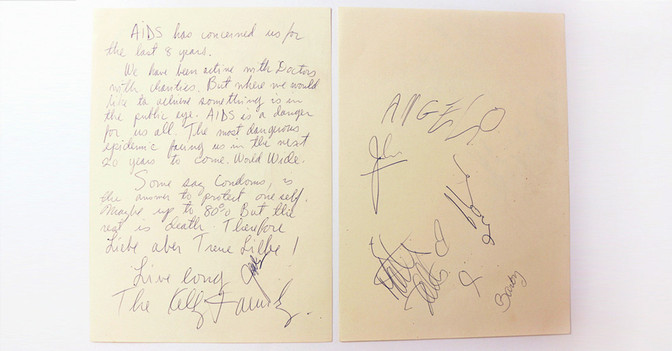 AIDS has concerned us for
the last 8 years.
We have been active with Doctors
with charities. But where we would
like to achieve something is in
the public eye. AIDS is a danger
for us all. The most dangerous
epidemic facing us in the next
20 years to come. World Wide.
Some say Condoms, is
the answer to protect one self.
Maybe up to 80% But the
rest is death. Therefore
Liebe aber Treue Liebe!
Live long
The Kelly Family.
ANGELO
John
Patricia
Barby